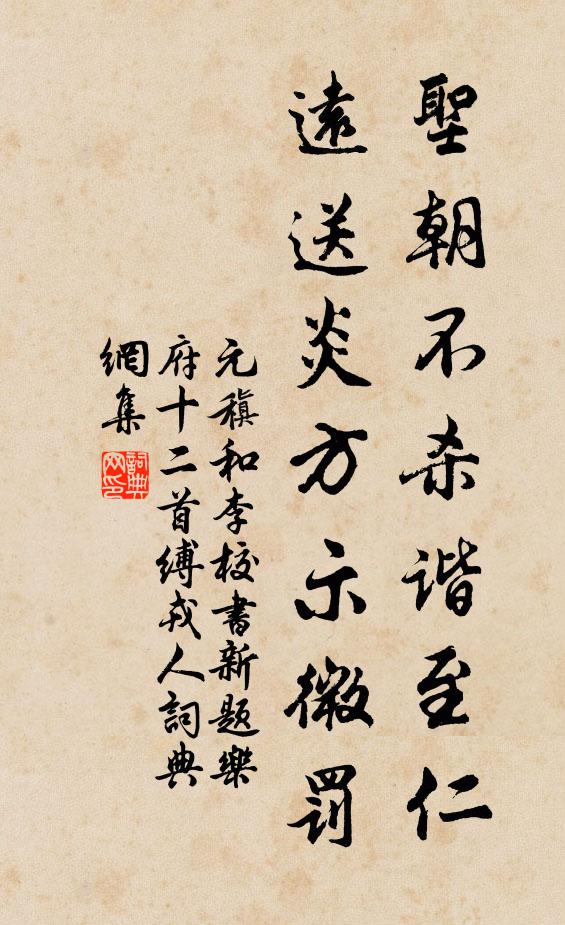 聖朝不杀谐至仁
遠送炎方示微罰
元稹和李校書新题樂
府十二首缚戎人詞典
網集
詞典网印